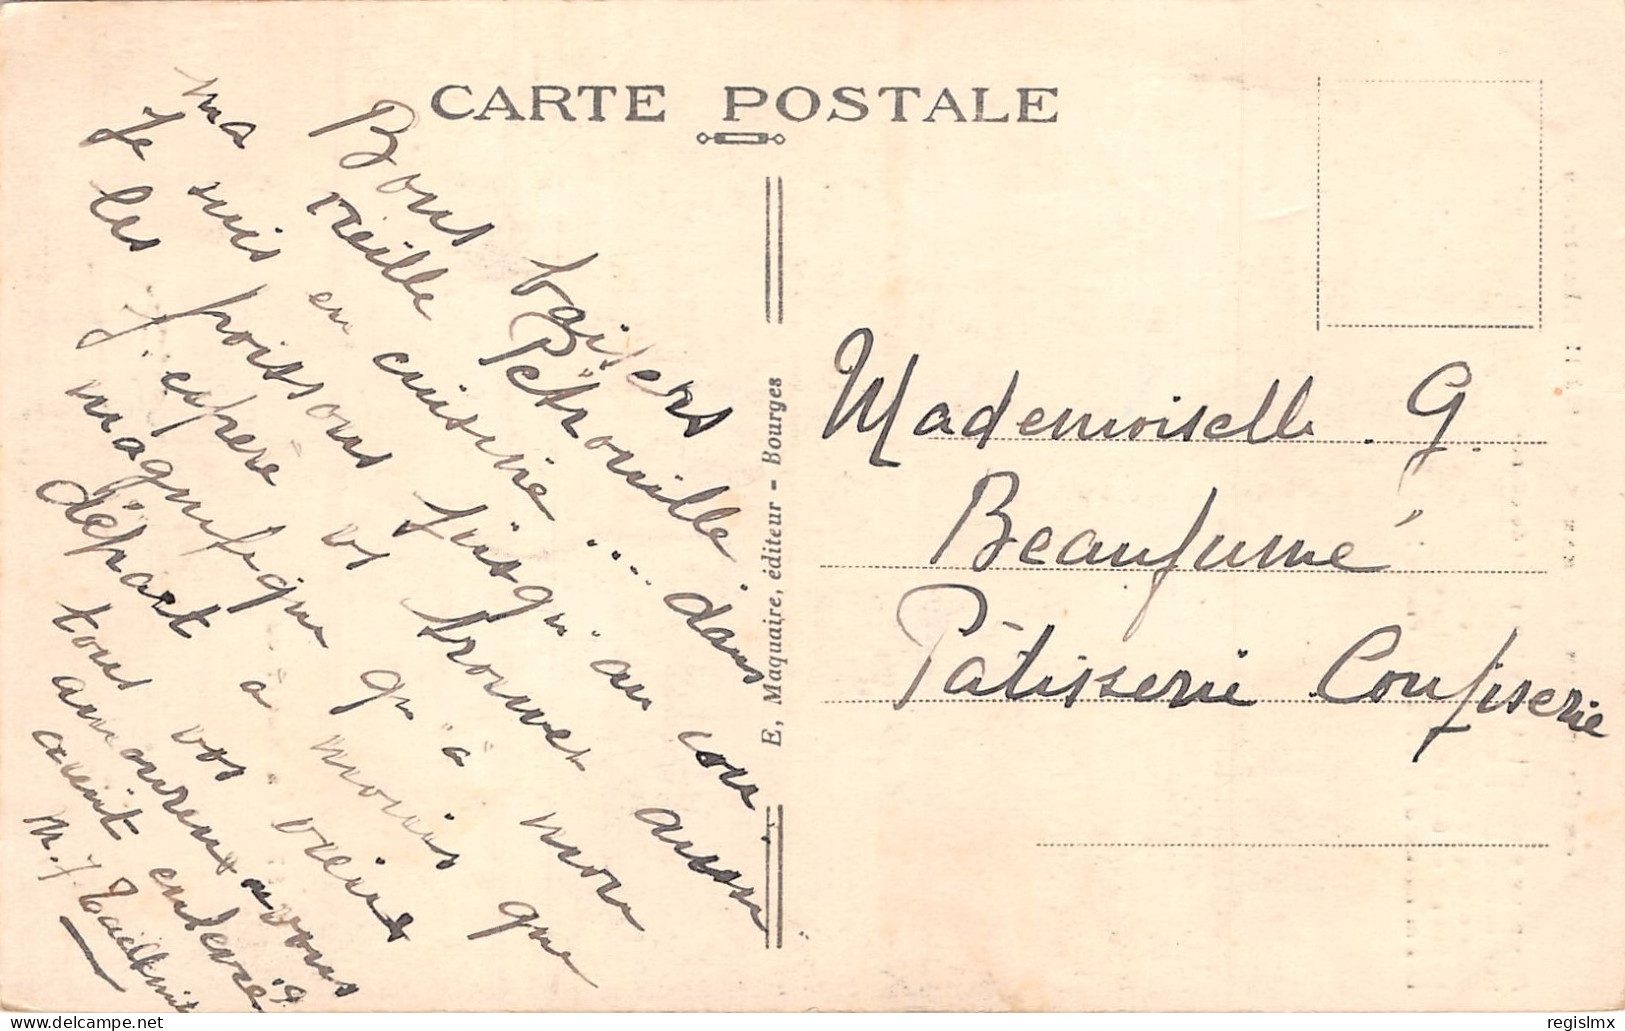 CARTE POSTALE
Bons baisers
ma vieille Pétrouille.
Je suis en cuisine .... dans
les poissons jusqu'au cou
J'espère vs trouver aussi
magnifique qu'à mon
départ à moins que
tous vos vieux
amoureux vous
aient enlevé
M. J
E, Maquaire, éditeur - Bourges
Mademoiselle. G.
Beaufumé
Pâtisserie Confiserie
delcampe.net
regislmx